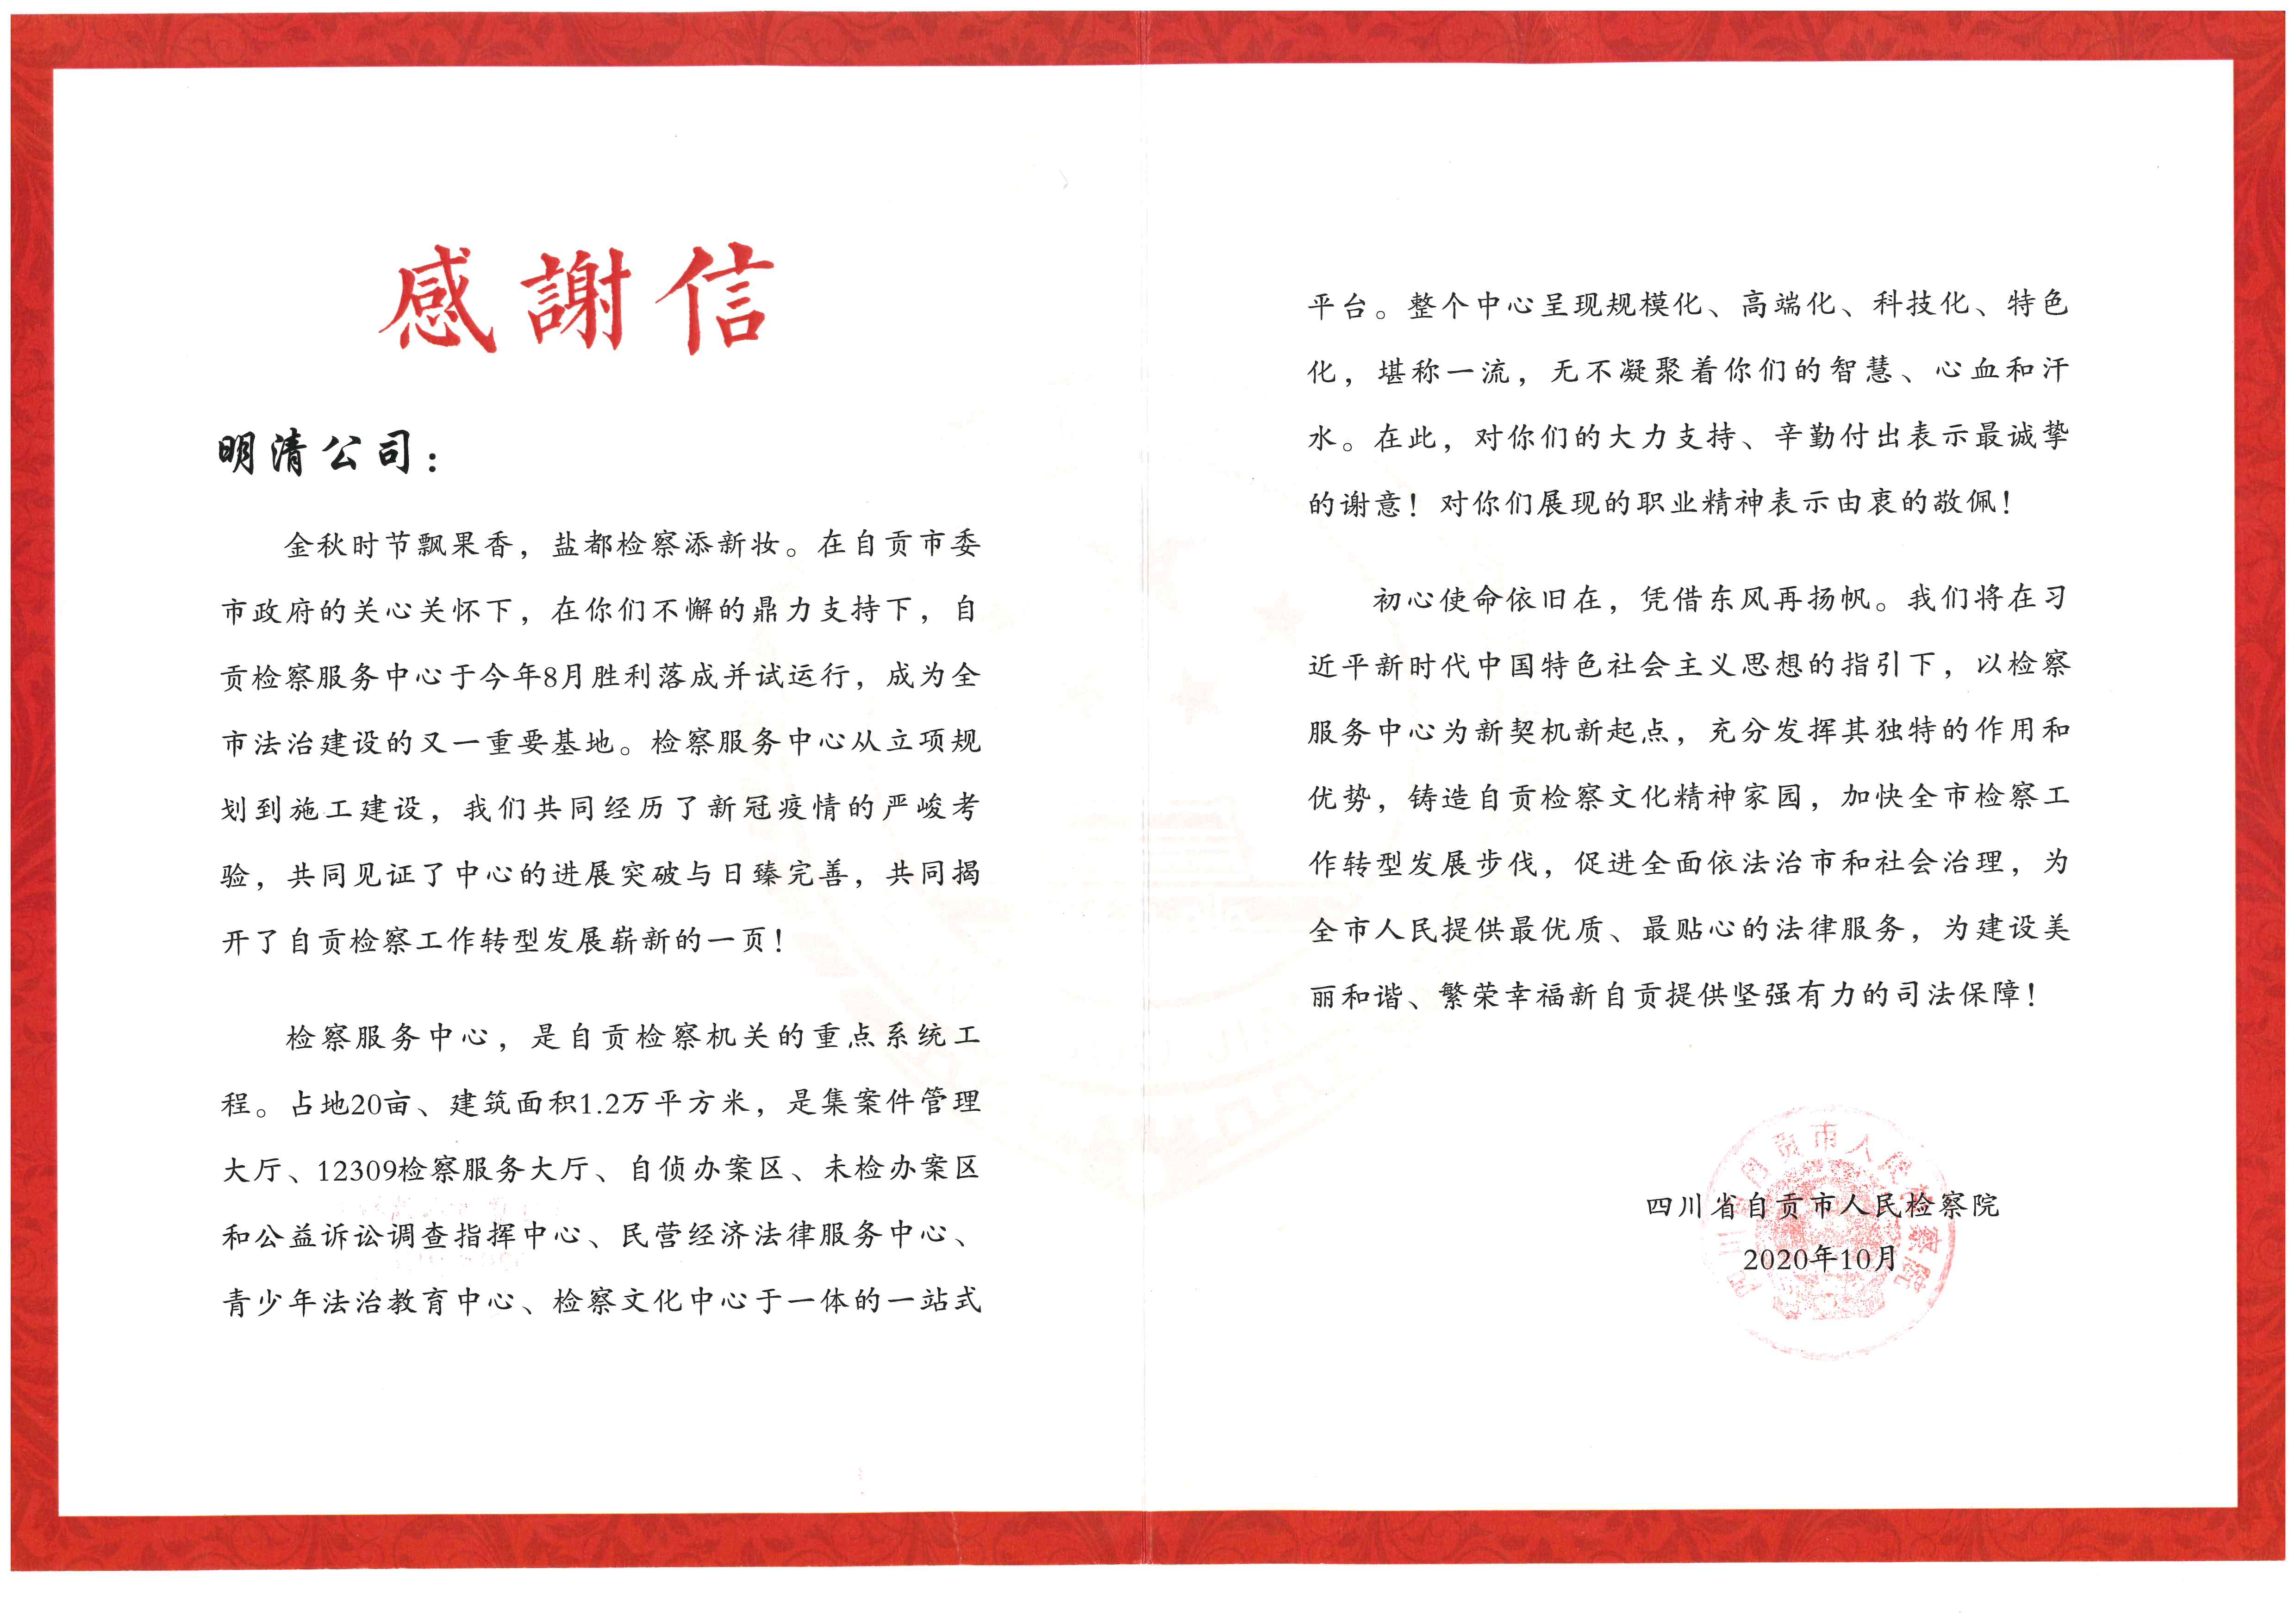 感謝信
明清公司：
金秋时节飘果香，盐都检察添新妆。在自贡市委
市政府的关心关怀下，在你们不懈的鼎力支持下，自
贡检察服务中心于今年8月胜利落成并试运行，成为全
市法治建设的又一重要基地。检察服务中心从立项规
划到施工建设，我们共同经历了新冠疫情的严峻考
验，共同见证了中心的进展突破与日臻完善，共同揭
开了自贡检察工作转型发展崭新的一页！
检察服务中心，是自贡检察机关的重点系统工
程。占地20亩、建筑面积1.2万平方米，是集案件管理
大厅、12309检察服务大厅、自侦办案区、未检办案区
和公益诉讼调查指挥中心、民营经济法律服务中心、
青少年法治教育中心、检察文化中心于一体的一站式
平台。整个中心呈现规模化、高端化、科技化、特色
化，堪称一流，无不凝聚着你们的智慧、心血和汗
水。在此，对你们的大力支持、辛勤付出表示最诚挚
的谢意！对你们展现的职业精神表示由衷的敬佩！
初心使命依旧在，凭借东风再扬帆。我们将在习
近平新时代中国特色社会主义思想的指引下，以检察
服务中心为新契机新起点，充分发挥其独特的作用和
优势，铸造自贡检察文化精神家园，加快全市检察工
作转型发展步伐，促进全面依法治市和社会治理，为
全市人民提供最优质、最贴心的法律服务，为建设美
丽和谐、繁荣幸福新自贡提供坚强有力的司法保障！
四川省自贡市人民检察院
2020年10月
四川省自贡市人民检察院